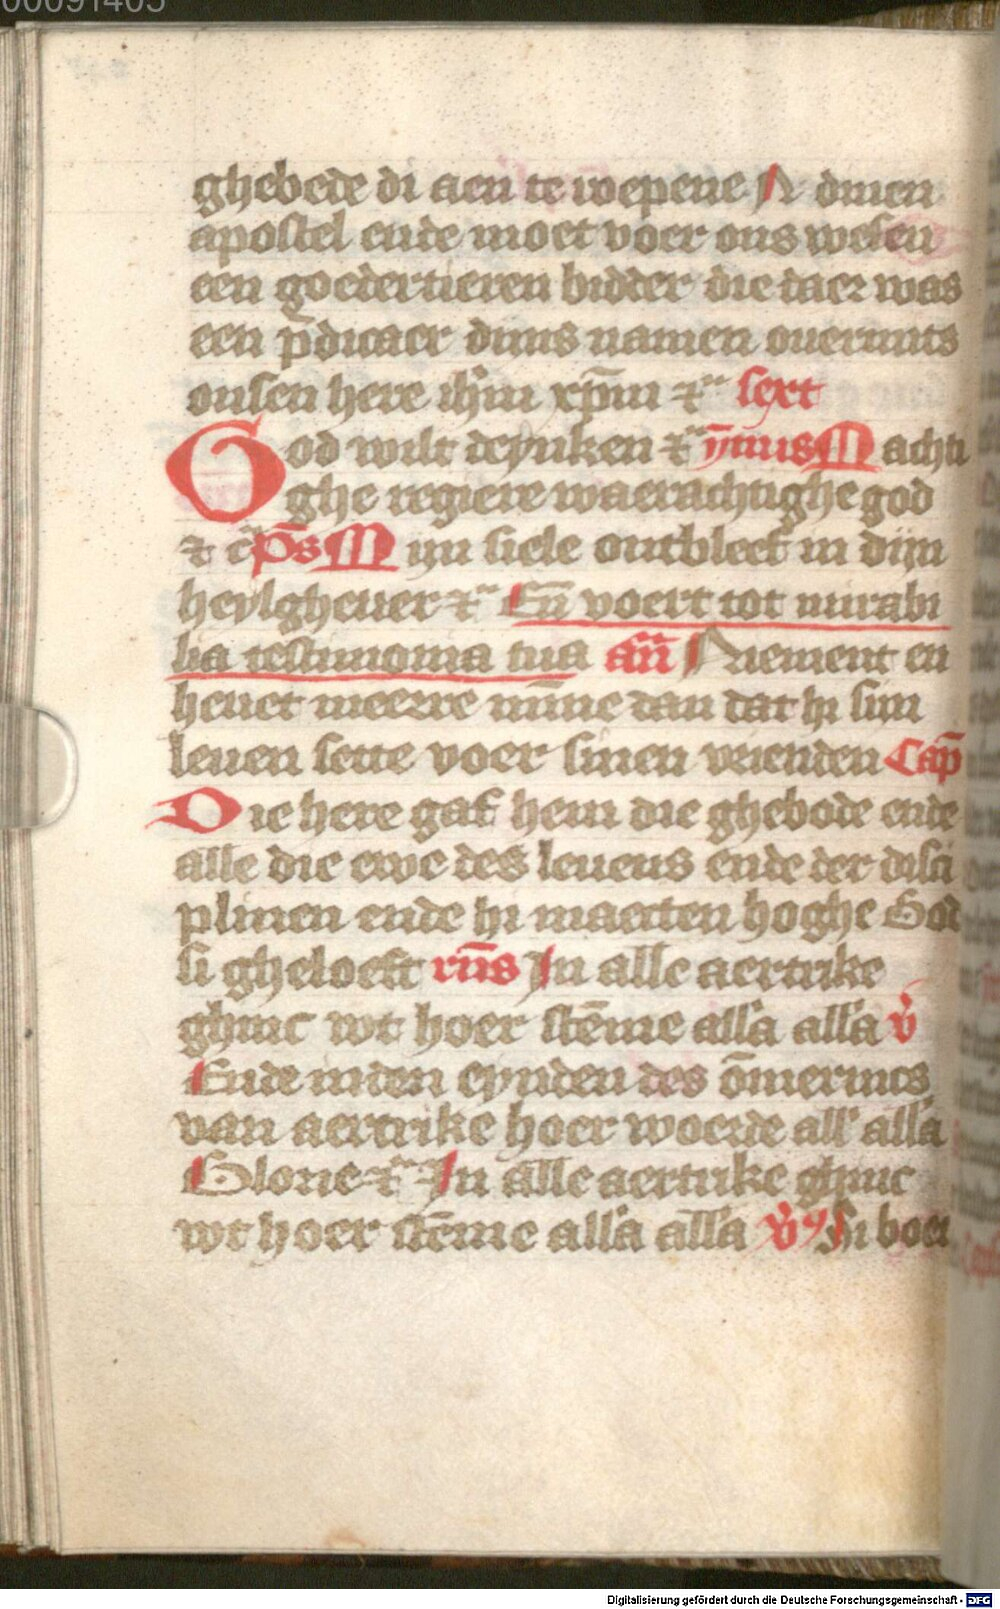 00091405
ghebede di aen te roepene N dinen
apostel ende moet voer ons wesen
een goedertieren bidder die daer was
een p̄dicaer dijns namen ouermits
onsen here ih̄m xp̄m ⁊c̄ sext
God wilt deynken ⁊c̄ ȳmus Machti
ghe regiere waerachtighe god
⁊ c̄ p̄s Mijn siele ontbleef in dijn
heylgheuer ⁊c̄ En̄ voert tot mirabi
lia testimonia tua an̄ Niement en
heuet meerre min̄ne dan dat hi sijn
leuen sette voer sinen vrienden Cap̄
Die here gaf hem die ghebode ende
alle die ewe des leuens ende der disci
plinen ende hi maecten hoghe God
si gheloeft rn̄s In alle aertrike
ghinc wt hoer stēme all'a all'a v̄
Ende inden eynden des ōmerincs
van aertrike hoer woerde all' all'a
Glorie ⁊c̄ In alle aertrike ghinc
wt hoer stēme all'a all'a v̄s Si boet
Digitalisierung gefördert durch die Deutsche Forschungsgemeinschaft - DFG